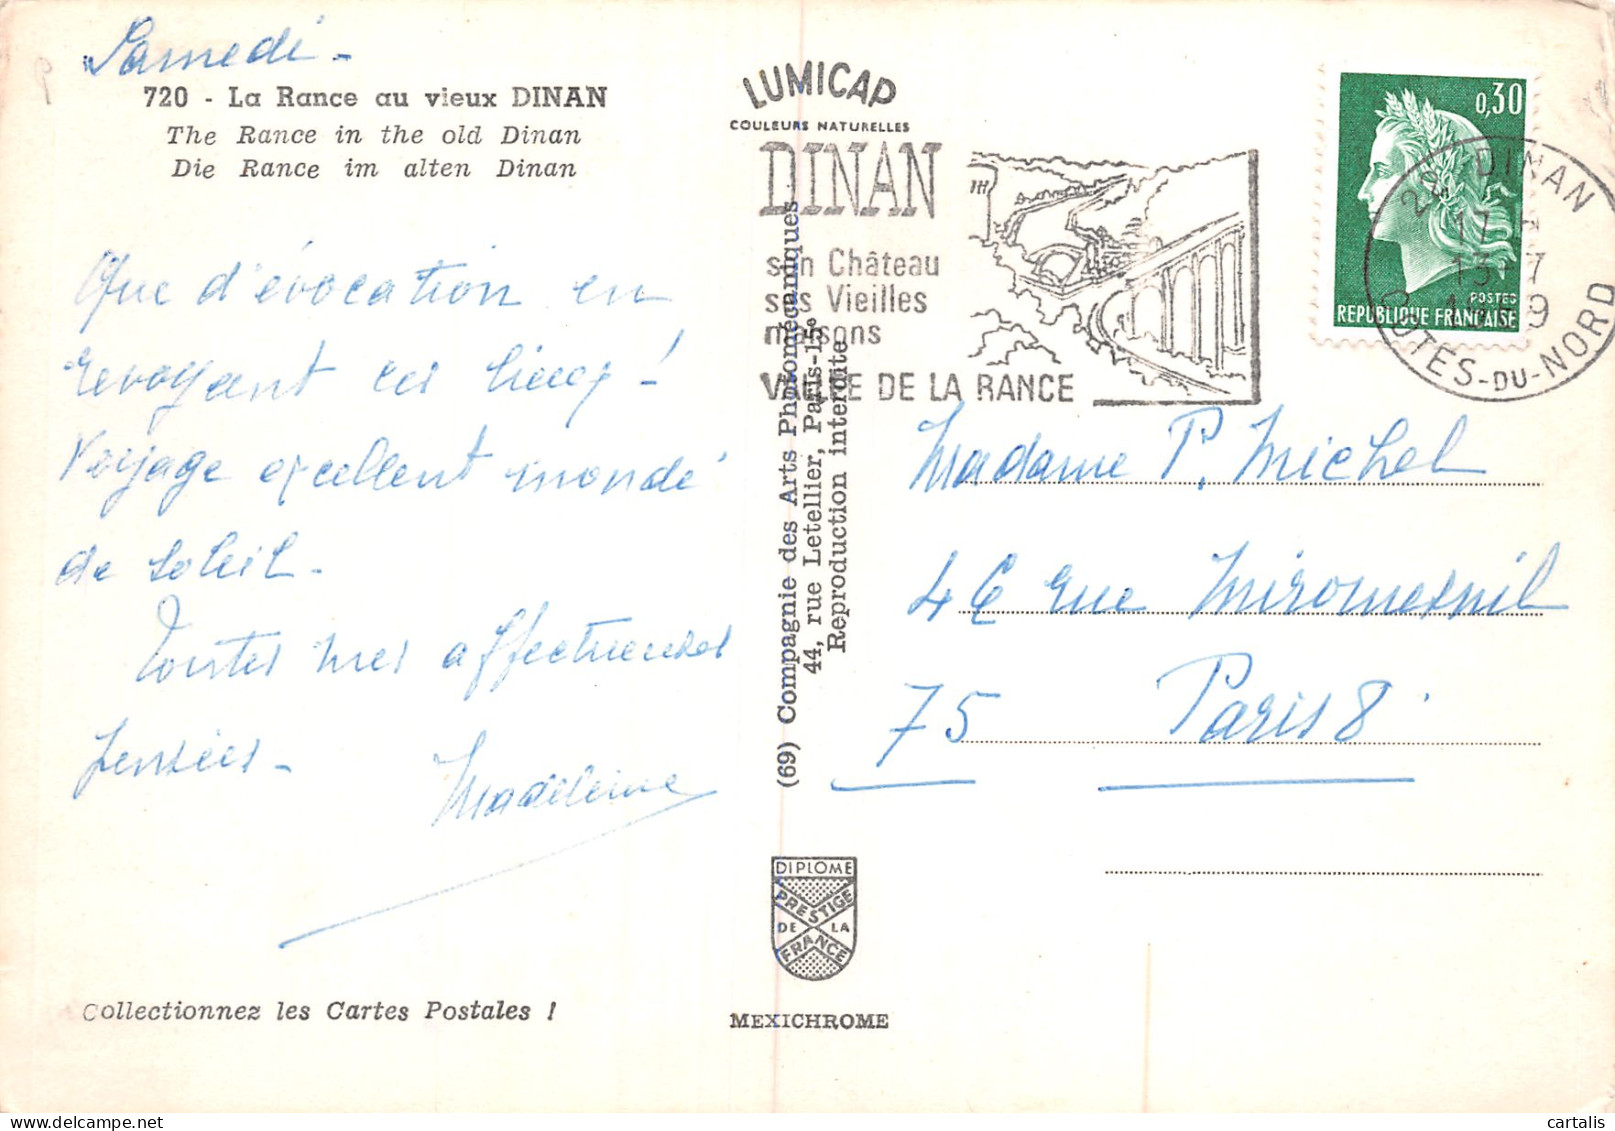 Samedi -
720 - La Rance au vieux DINAN
The Rance in the old Dinan
Die Rance im alten Dinan
Que d'évocation en
revoyant ces lieux !
Voyage excellent inondé
de soleil -
Toutes mes affectueuses
pensées -
Madeleine
Collectionnez les Cartes Postales !
LUMICAP
COULEURS NATURELLES
DINAN
son Château
ses Vieilles
maisons
VALLÉE DE LA RANCE
(69) Compagnie des Arts Photomécaniques
44, rue Letellier, Paris-15e
Reproduction interdite
DIPLOME
PRESTIGE
DE LA
FRANCE
MEXICHROME
0,30
POSTES
REPUBLIQUE FRANÇAISE
22 DINAN
17 H
13-7
1969
COTES-DU-NORD
Madame P. Michel
46 rue Miromesnil
75 Paris 8
cartalis